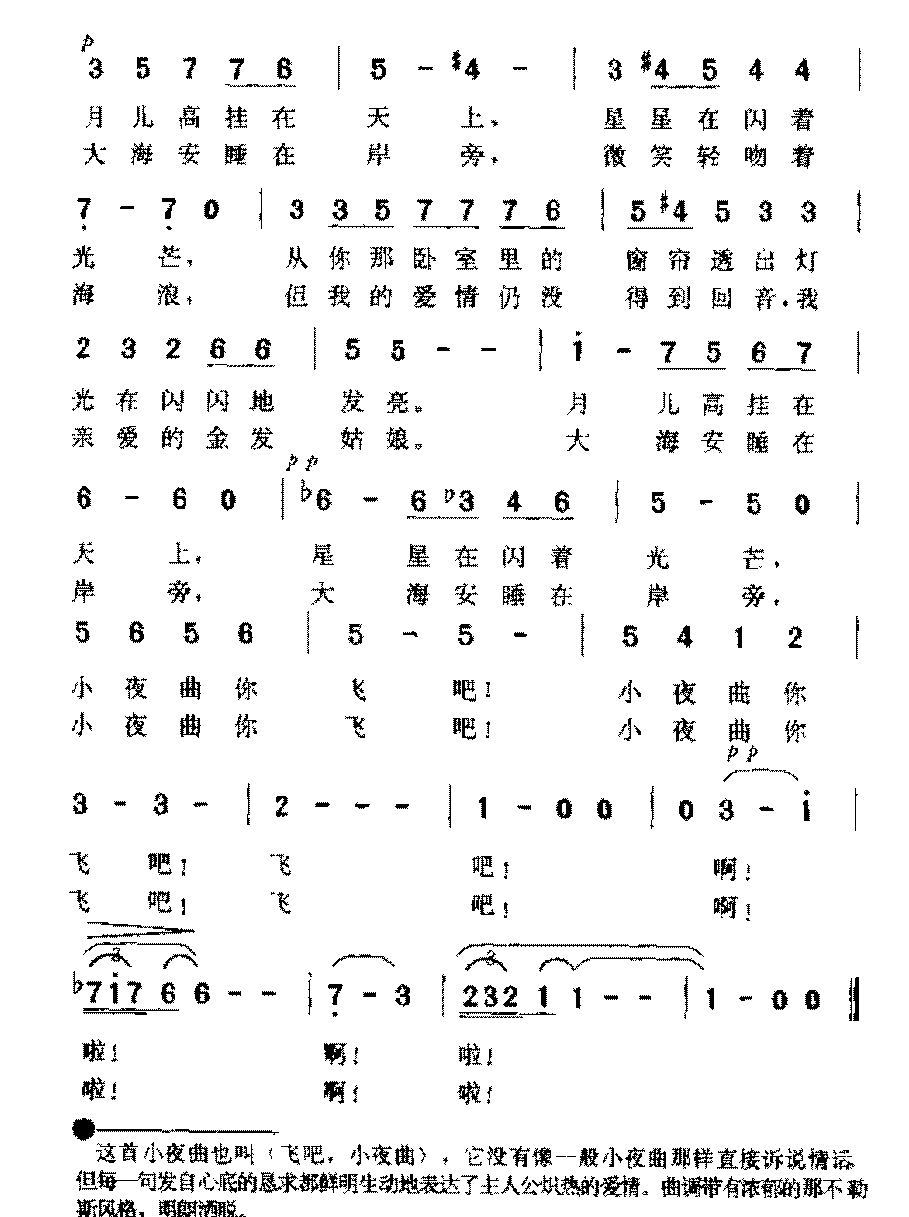 p
3 5 7 7 6 | 5 - #4 - | 3 #4 5 4 4 |
月儿高挂在 天 上， 星星在闪着
大海安睡在 岸 旁， 微笑轻吻着
7 - 7 0 | 3 3 5 7 7 7 6 | 5 #4 5 3 3 |
光 芒， 从你那卧室里的 窗帘透出灯
海 浪； 但我的爱情仍没 得到回音，我
2 3 2 6 6 | 5 5 - - | i - 7 5 6 7 |
光在闪闪地 发亮。 月 儿高挂在
亲爱的金发 姑娘。 大 海安睡在
pp
6 - 6 0 | ♭6 - 6 ♭3 4 6 | 5 - 5 0 |
天 上， 星 星在闪着 光 芒，
岸 旁， 大 海安睡在 岸 旁，
5 6 5 6 | 5 - 5 - | 5 4 1 2 |
小夜曲你 飞 吧！ 小夜曲你
小夜曲你 飞 吧！ 小夜曲你
pp
3 - 3 - | 2 - - - | 1 - 0 0 | 0 3 - i |
飞 吧！ 飞 吧！ 啊！
飞 吧！ 飞 吧！ 啊！
3 3
♭7 i 7 6 6 - - | 7 - 3 | 2 3 2 1 1 - - | 1 - 0 0 ‖
啦！ 啊！ 啦！
啦！ 啊！ 啦！
这首小夜曲也叫（飞吧，小夜曲），它没有像一般小夜曲那样直接诉说情话，
但每一句发自心底的恳求都鲜明生动地表达了主人公炽热的爱情。曲调带有浓郁的那不勒
斯风格，明朗洒脱。